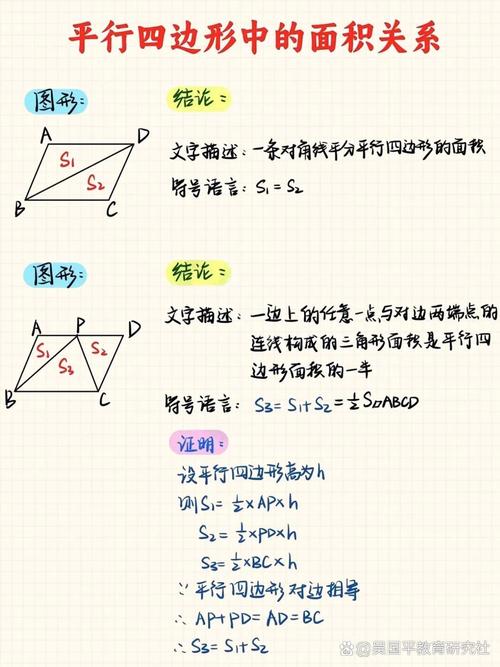 平行四边形中的面积关系
图形:
结论:
A
D
S1
S2
B
C
文字描述: 一条对角线平分平行四边形的面积
符号语言: S1=S2
图形:
结论:
A
P
D
S1
S2
S3
B
C
文字描述: 一边上的任意一点与对边两端点的
连线构成的三角形面积是平行四
边形面积的一半
符号语言: S3=S1+S2=½S▱ABCD
证明:
设平行四边形高为h
则S1=½×AP×h
S2=½×PD×h
S3=½×BC×h
∵平行四边形对边相等
∴AP+PD=AD=BC
∴S3=S1+S2
@吴国平教育研究社